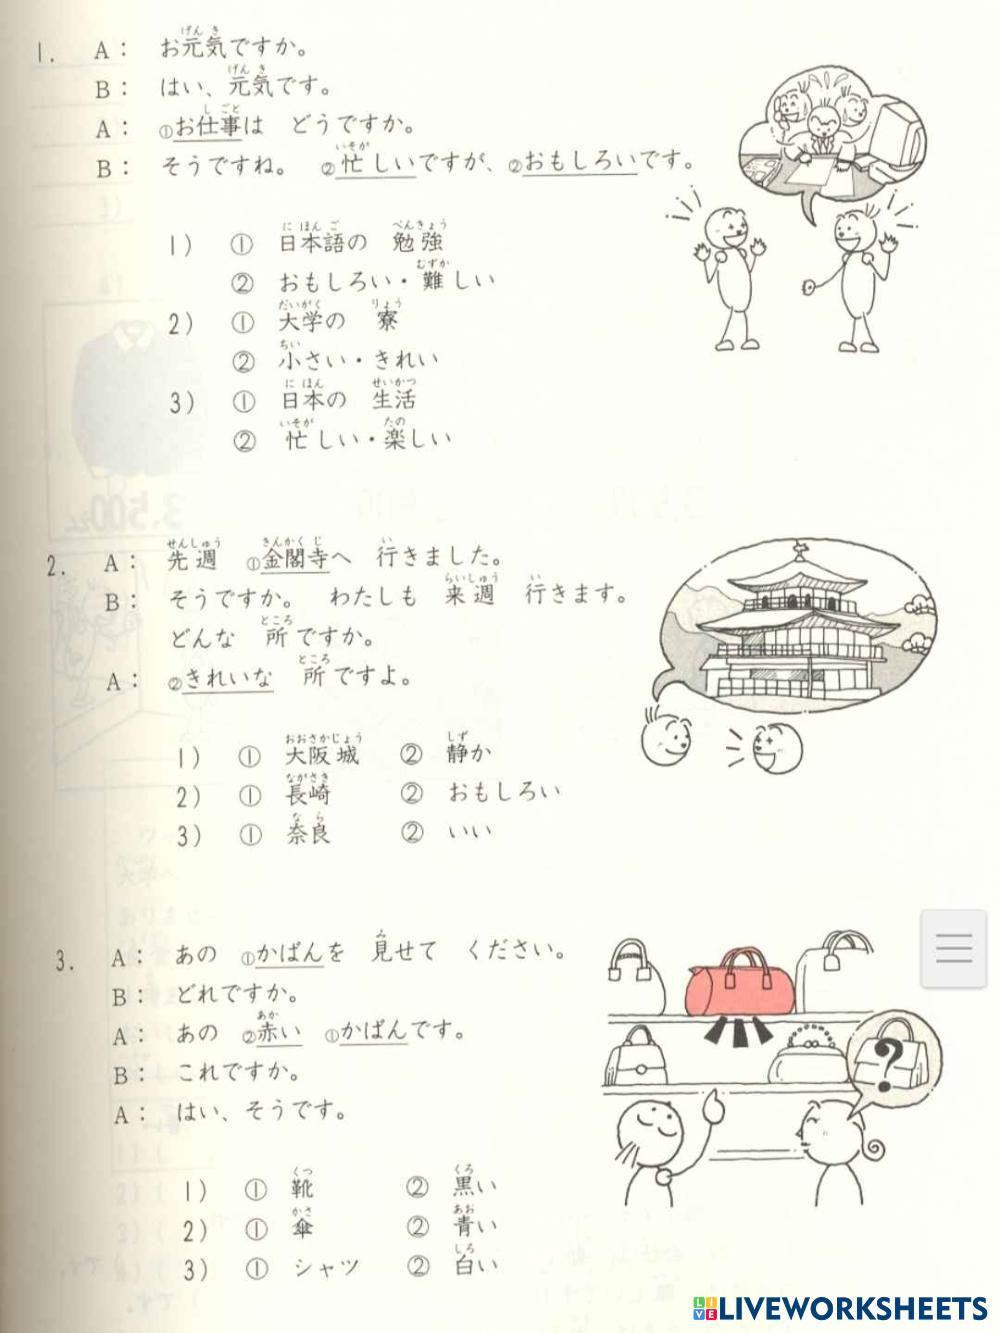 1. A： お元気ですか。
B： はい、元気です。
A： ①お仕事は どうですか。
B： そうですね。 ②忙しいですが、②おもしろいです。
1) ① 日本語の 勉強
② おもしろい・難しい
2) ① 大学の 寮
② 小さい・きれい
3) ① 日本の 生活
② 忙しい・楽しい
2. A： 先週 ①金閣寺へ 行きました。
B： そうですか。 わたしも 来週 行きます。
どんな 所ですか。
A： ②きれいな 所ですよ。
1) ① 大阪城 ② 静か
2) ① 長崎 ② おもしろい
3) ① 奈良 ② いい
3. A： あの ①かばんを 見せて ください。
B： どれですか。
A： あの ②赤い ①かばんです。
B： これですか。
A： はい、そうです。
1) ① 靴 ② 黒い
2) ① 傘 ② 青い
3) ① シャツ ② 白い
?
LIVE LIVEWORKSHEETS